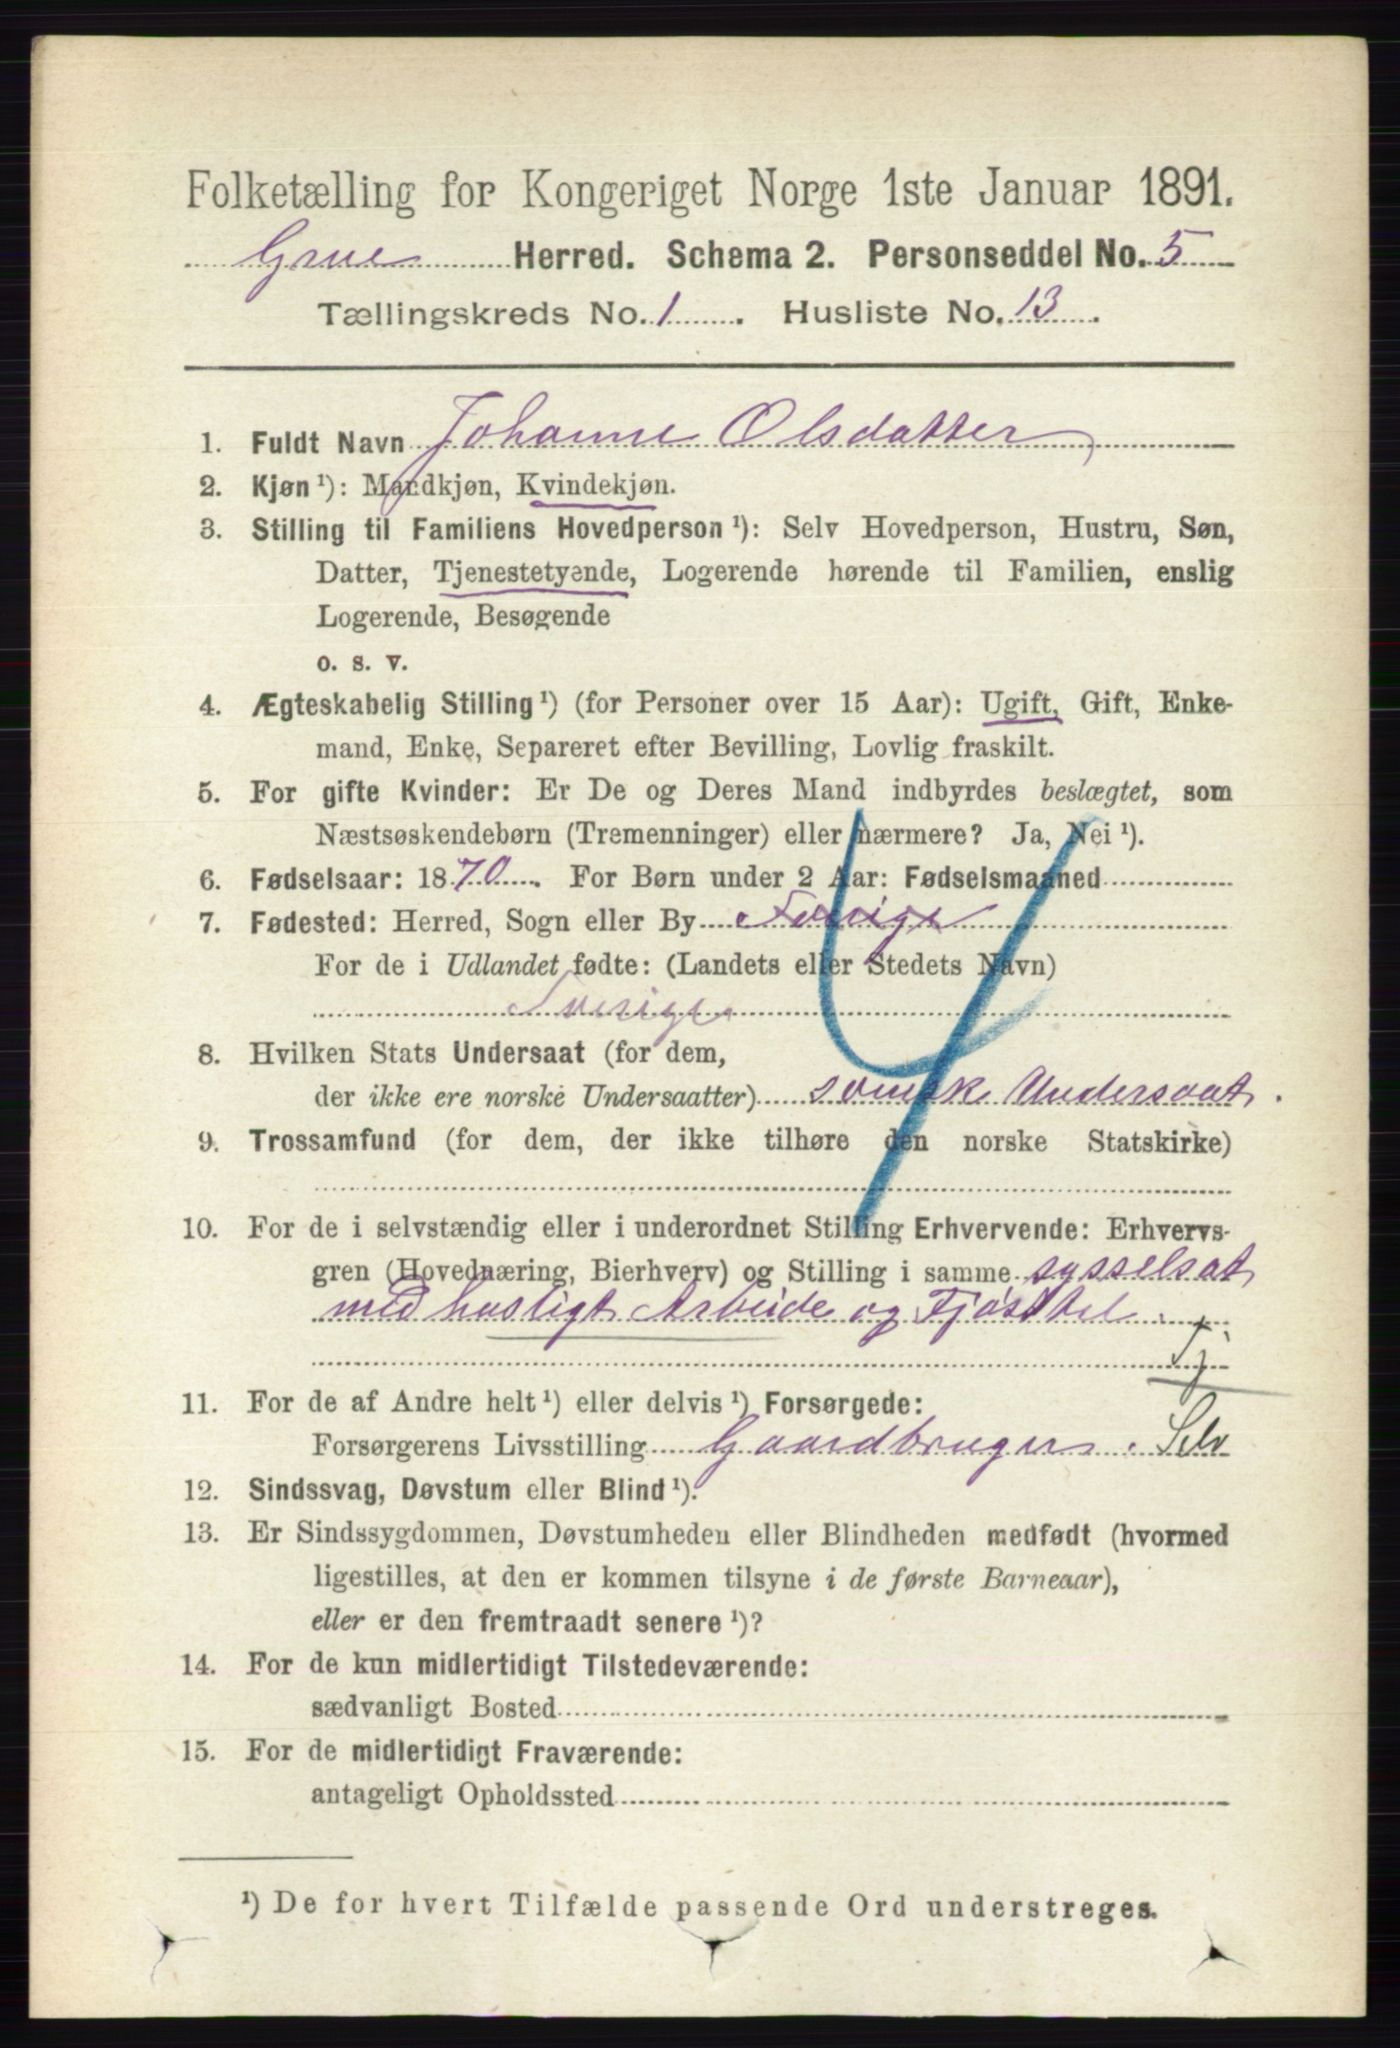 Folketælling for Kongeriget Norge 1ste Januar 1891.
Grue Herred. Schema 2. Personseddel No. 5
Tællingskreds No. 1. Husliste No. 13.
1. Fuldt Navn Johanne Olsdatter
2. Kjøn ¹): Mandkjøn, Kvindekjøn.
3. Stilling til Familiens Hovedperson ¹): Selv Hovedperson, Hustru, Søn,
Datter, Tjenestetyende, Logerende hørende til Familien, enslig
Logerende, Besøgende
o. s. v.
4. Ægteskabelig Stilling ¹) (for Personer over 15 Aar): Ugift, Gift, Enke-
mand, Enke, Separeret efter Bevilling, Lovlig fraskilt.
5. For gifte Kvinder: Er De og Deres Mand indbyrdes beslægtet, som
Næstsøskendebørn (Tremenninger) eller nærmere? Ja, Nei ¹).
6. Fødselsaar: 1870. For Børn under 2 Aar: Fødselsmaaned
7. Fødested: Herred, Sogn eller By Sverige
For de i Udlandet fødte: (Landets eller Stedets Navn)
Sverige
8. Hvilken Stats Undersaat (for dem,
der ikke ere norske Undersaatter) svensk Undersaat.
9. Trossamfund (for dem, der ikke tilhøre den norske Statskirke)
10. For de i selvstændig eller i underordnet Stilling Erhvervende: Erhvervs-
gren (Hovednæring, Bierhverv) og Stilling i samme sysselsat
med husligt Arbeide og Fjøsstel.
Tj
11. For de af Andre helt ¹) eller delvis ¹) Forsørgede:
Forsørgerens Livsstilling Gaardbruger. Selv
12. Sindssvag, Døvstum eller Blind ¹).
13. Er Sindssygdommen, Døvstumheden eller Blindheden medfødt (hvormed
ligestilles, at den er kommen tilsyne i de første Barneaar),
eller er den fremtraadt senere ¹)?
14. For de kun midlertidigt Tilstedeværende:
sædvanligt Bosted
15. For de midlertidigt Fraværende:
antageligt Opholdssted
¹) De for hvert Tilfælde passende Ord understreges.